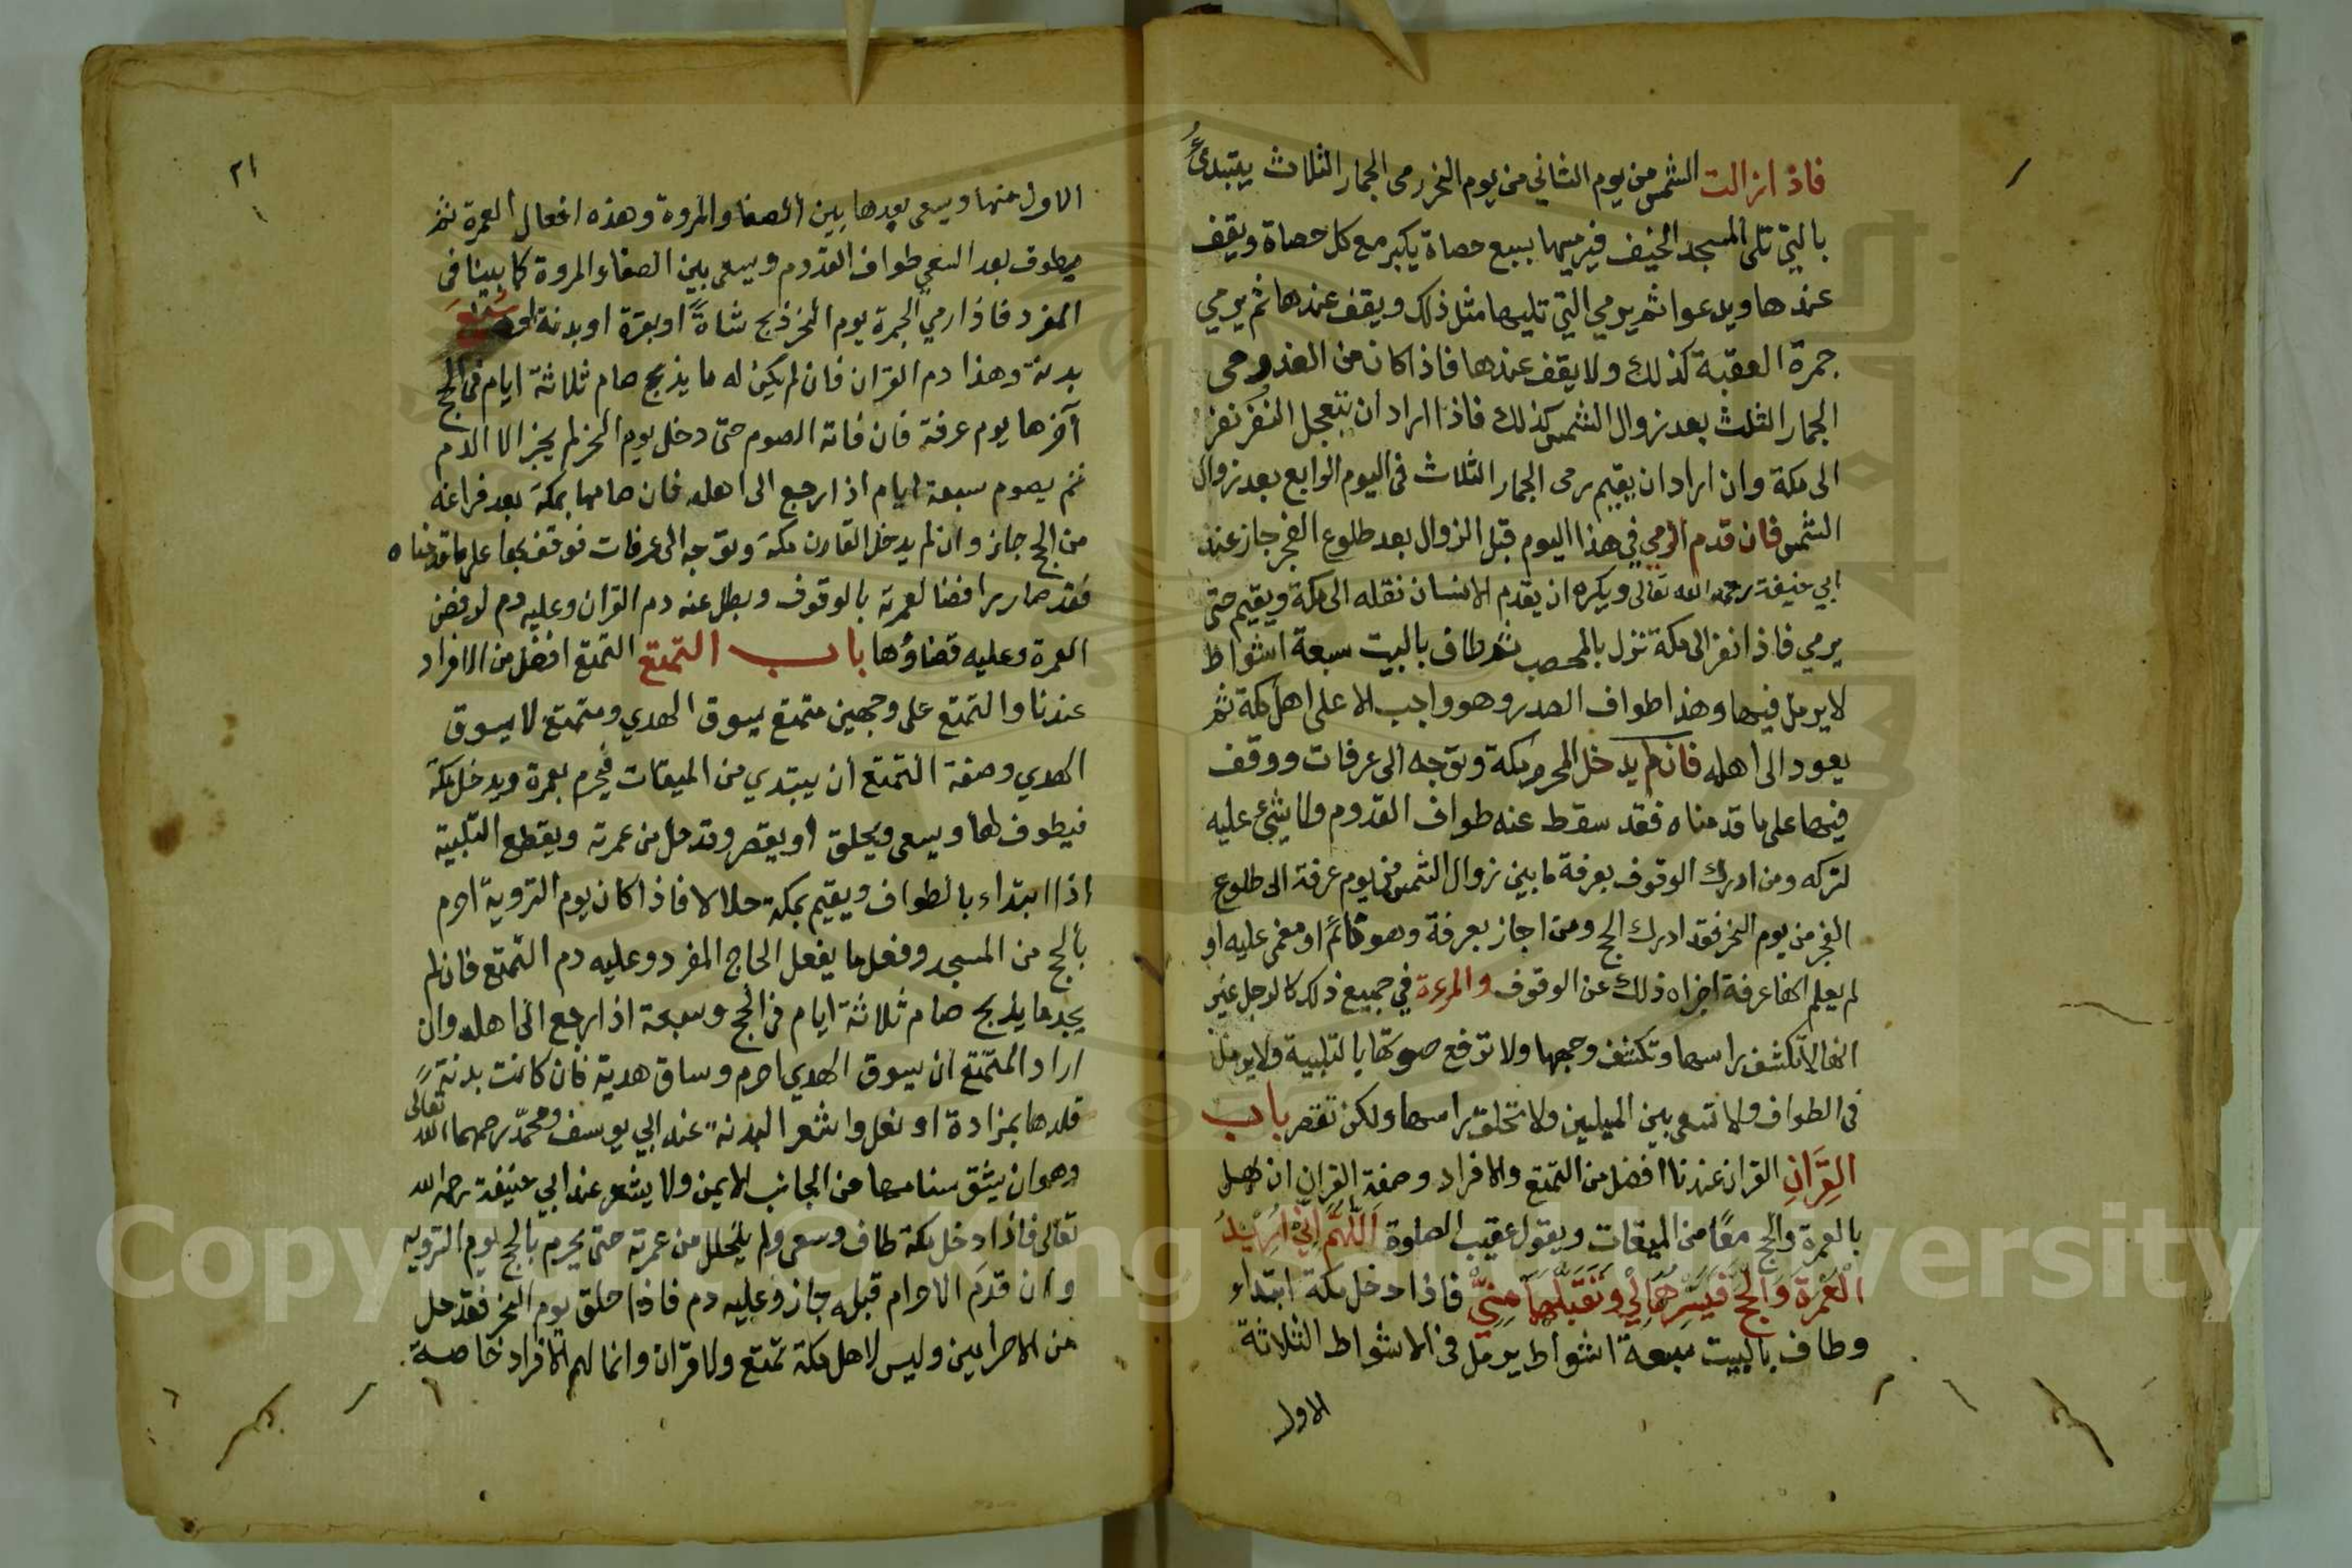 فاذا زالت الشمس من يوم الثاني من يوم النحر رمى الجمار الثلاث يبتدئ
بالتي تلى المسجد الخيف فيرميها بسبع حصاة يكبر مع كل حصاة ويقف
عندها ويدعوا ثم يرمي التي تليها مثل ذلك ويقف عندها ثم يرمي
جمرة العقبة كذلك ولا يقف عندها فاذا كان من الغد رمى
الجمار الثلث بعد زوال الشمس كذلك فاذا اراد ان يتعجل النفر نفر
الى مكة وان اراد ان يقيم رمى الجمار الثلاث في اليوم الرابع بعد زوال
الشمس فان قدم الرمي في هذا اليوم قبل الزوال بعد طلوع الفجر جاز عند
ابي حنيفة رحمه الله تعالى ويكره ان يقدم الانسان نقله الى مكة ويقيم حتى
يرمي فاذا نفر الى مكة نزل بالمحصب ثم طاف بالبيت سبعة اشواط
لا يرمل فيها وهذا طواف الصدر وهو واجب الا على اهل مكة ثم
يعود الى اهله فان لم يدخل المحرم مكة وتوجه الى عرفات ووقف
فيها على ما قدمناه فقد سقط عنه طواف القدوم ولا شيء عليه
لتركه ومن ادرك الوقوف بعرفة ما بين زوال الشمس من يوم عرفة الى طلوع
الفجر من يوم النحر فقد ادرك الحج ومن اجاز بعرفة وهو نائم او مغمى عليه او
لم يعلم انها عرفة اجزاه ذلك عن الوقوف والمرءة في جميع ذلك كالرجل غير
انها لا تكشف راسها وتكشف وجهها ولا ترفع صوتها بالتلبية ولا يرمل
في الطواف ولا تسعى بين الميلين ولا تحلق راسها ولكن تقصر باب
القِرَانِ القران عندنا افضل من التمتع والافراد وصفة القران ان يهل
بالعمرة والحج معًا من الميقات ويقول عقيب الصلوة اَللّٰهُمَّ اِنِّي اُرِيْدُ
الْعُمْرَةَ وَالْحَجَّ فَيَسِّرْهُمَا لِيْ وَتَقَبَّلْهُمَا مِنِّيْ فاذا دخل مكة ابتداء
وطاف بالبيت سبعة اشواط يرمل في الاشواط الثلاثة
الاول
٢١
الاول منها ويسعى بعدها بين الصفا والمروة وهذه افعال العمرة ثم
يطوف بعد السعي طواف القدوم ويسعى بين الصفا والمروة كما بينا في
المفرد فاذا رمي الجمرة يوم النحر ذبح شاةً او بقرة او بدنة او سُبْعَ
بدنة وهذا دم القران فان لم يكن له ما يذبح صام ثلاثة ايام في الحج
آخرها يوم عرفة فان فاته الصوم حتى دخل يوم النحر لم يجز الا الدم
ثم يصوم سبعة ايام اذا رجع الى اهله فان صامها بمكة بعد فراغه
من الحج جاز وان لم يدخل القارن مكة وتوجه الى عرفات فوقف بها على ما قدمناه
فقد صار رافضا لعمرته بالوقوف وبطل عنه دم القران وعليه دم لرفض
العمرة وعليه قضاؤها باب التمتع التمتع افضل من الافراد
عندنا والتمتع على وجهين متمتع يسوق الهدي ومتمتع لا يسوق
الهدي وصفة التمتع ان يبتدي من الميقات فيحرم بعمرة ويدخل مكة
فيطوف لها ويسعى ويحلق او يقصر وقد حل من عمرته ويقطع التلبية
اذا ابتداء بالطواف ويقيم بمكة حلالا فاذا كان يوم التروية احرم
بالحج من المسجد وفعل ما يفعل الحاج المفرد وعليه دم التمتع فان لم
يجد ما يذبح صام ثلاثة ايام في الحج وسبعة اذا رجع الى اهله وان
اراد المتمتع ان يسوق الهدي احرم وساق هديه فان كانت بدنةً
قلدها بمزادة او نعل واشعر البدنة عند ابي يوسف ومحمد رحمهما الله تعالى
وهو ان يشق سنامها من الجانب الايمن ولا يشعر عند ابي حنيفة رحمه الله
تعالى فاذا دخل مكة طاف وسعى ولم يتحلل من عمرته حتى يحرم بالحج يوم التروية
وان قدم الاحرام قبله جاز وعليه دم فاذا حلق يوم النحر فقد حل
من الاحرامين وليس لاهل مكة تمتع ولا قران وانما لهم الافراد خاصة